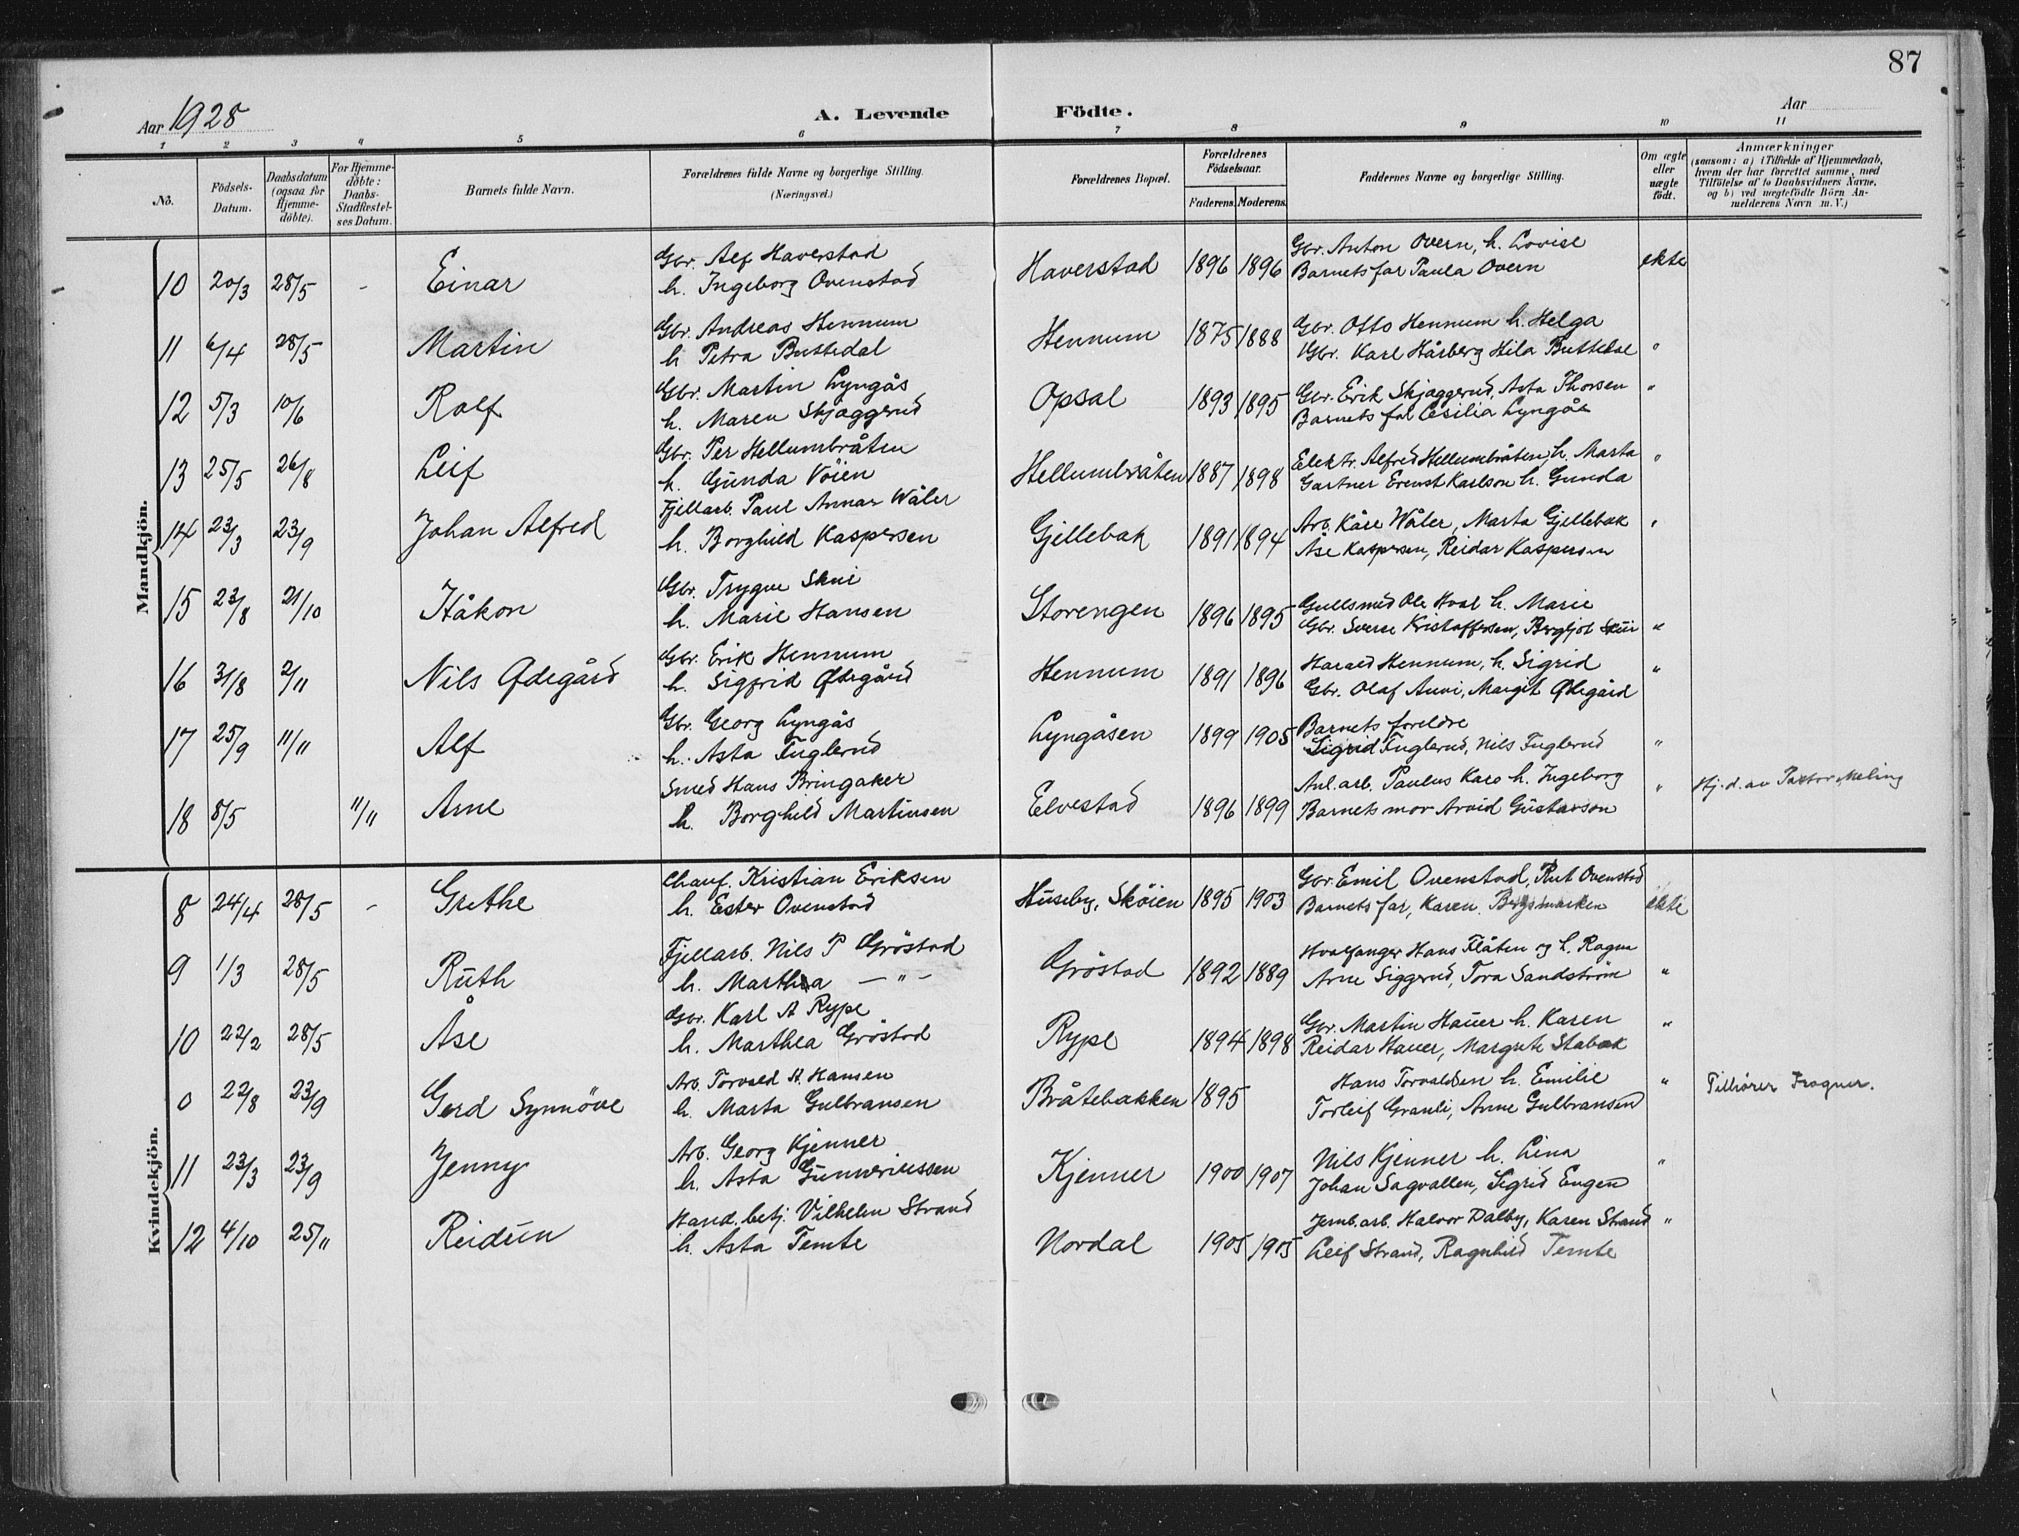 87
Aar 1928 A. Levende Födte. Aar
1 2 3 4 5 6 7 8 9 10 11
No.
Födsels-Datum.
Daabsdatum (ogsaa for Hjemme-döbte).
For Hjemme-döbte: Daabs-Stadfæstel-ses Datum.
Barnets fulde Navn.
Forældrenes fulde Navne og borgerlige Stilling.
(Næringsvei.)
Forældrenes Bopæl.
Forældrenes Födselsaar.
Faderens. Moderens.
Faddernes Navne og borgerlige Stilling.
Om ægte eller uægte födt.
Anmærkninger
(saasom: a) i Tilfælde af Hjemmedaab,
hvem der har forrettet samme, med
Tilföielse af to Daabsvidners Navne,
og b) ved uægtefödte Börn An-
melderens Navn m. V.)
Mandkjön.
10 20/3 28/5 - Einar Gbr. Alf Haverstad Haverstad 1896 1896 Gbr. Anton Overn, h. Lovise ekte
h. Ingeborg Ovenstad Barnets far Paula Overn
11 6/4 28/5 Martin Gbr. Andreas Hennum Hennum 1875 1888 Gbr. Otto Hennum h. Helga "
h. Petra Buttedal Gbr. Karl Hårberg Hila Buttedal
12 5/3 10/6 Rolf Gbr. Martin Lyngås Opsal 1893 1895 Gbr. Erik Skjæggerud, Asta Thorsen "
h. Maren Skjæggerud Barnets far Cesilia Lyngås
13 25/5 26/8 Leif Gbr. Per Hellumbråten Hellumbråten 1887 1898 Elektr. Alfred Hellumbråten, h. Marta "
h. Gunda Vöien Gartner Evenst Karlson h. Gunda
14 23/3 23/9 Johan Alfred Fjellarb. Paul Annar Wåler Gjellebak 1891 1894 Arb. Kåre Wåler, Marta Gjellebak "
h. Borghild Kaspersen Åse Kaspersen, Reidar Kaspersen
15 23/8 21/10 Håkon Gbr. Trygve Skui Storengen 1896 1895 Gullsmed Ole Hval h. Marie
h. Marie Hansen Gbr. Sverre Kristoffersen, Bergljot Skui "
16 31/8 2/11 Nils Ødegård Gbr. Erik Hennum Hennum 1891 1896 Harald Hennum, h. Sigrid "
h. Sigfrid Ødegård Gbr. Olaf Auvi, Margit Ødegård
17 25/9 11/11 Alf Gbr. Georg Lyngås Lyngåsen 1899 1905 Barnets foreldre
h. Asta Fuglerud Sigrid Fuglerud, Nils Fuglerud "
18 8/5 11/11 Arne Smed Hans Bringaker Elvestad 1896 1899 Anl. arb. Paulus Kaas h. Ingeborg " Hj. d. av Pastor Meling
h. Borghild Martinsen Barnets mor Arvid Gustavson
Kvindekjön.
8 24/4 28/5 - Grethe Chauf. Kristian Eriksen Huseby, Skøien 1895 1903 Gbr. Emil Ovenstad, Rut Ovenstad ekte
h. Ester Ovenstad Barnets far, Karen Bergsmarken
9 1/3 28/5 Ruth Fjellarb. Nils P Gröstad Gröstad 1892 1889 Hvalfanger Hans Flåten og h. Ragna
h. Marthea - " - Arne Siggerud, Tora Sandström "
10 22/2 28/5 Åse Gbr. Karl A Rype Rype 1894 1898 Gbr. Martin Hauer h. Karen "
h. Marthea Gröstad Reidar Hauer, Margrete Stabæk
0 22/8 23/9 Gerd Synnöve Arb. Torvald A. Hansen Bråtebakken 1895 Hans Torvaldsen h. Emilie " Tilhører Frogner.
h. Marta Gulbransen Torleif Granli, Anne Gulbransen
11 23/3 23/9 Jenny Arb. Georg Kjenner Kjenner 1900 1907 Nils Kjenner h. Lina "
h. Asta Gunneriussen Johan Sagvollen, Sigrid Engen
12 4/10 25/11 Reidun Hand. betj. Vilhelm Strand Nordal 1905 1905 Jernb. arb. Halvor Dalby, Karen Strand "
h. Asta Temte Leif Strand, Ragnhild Temte